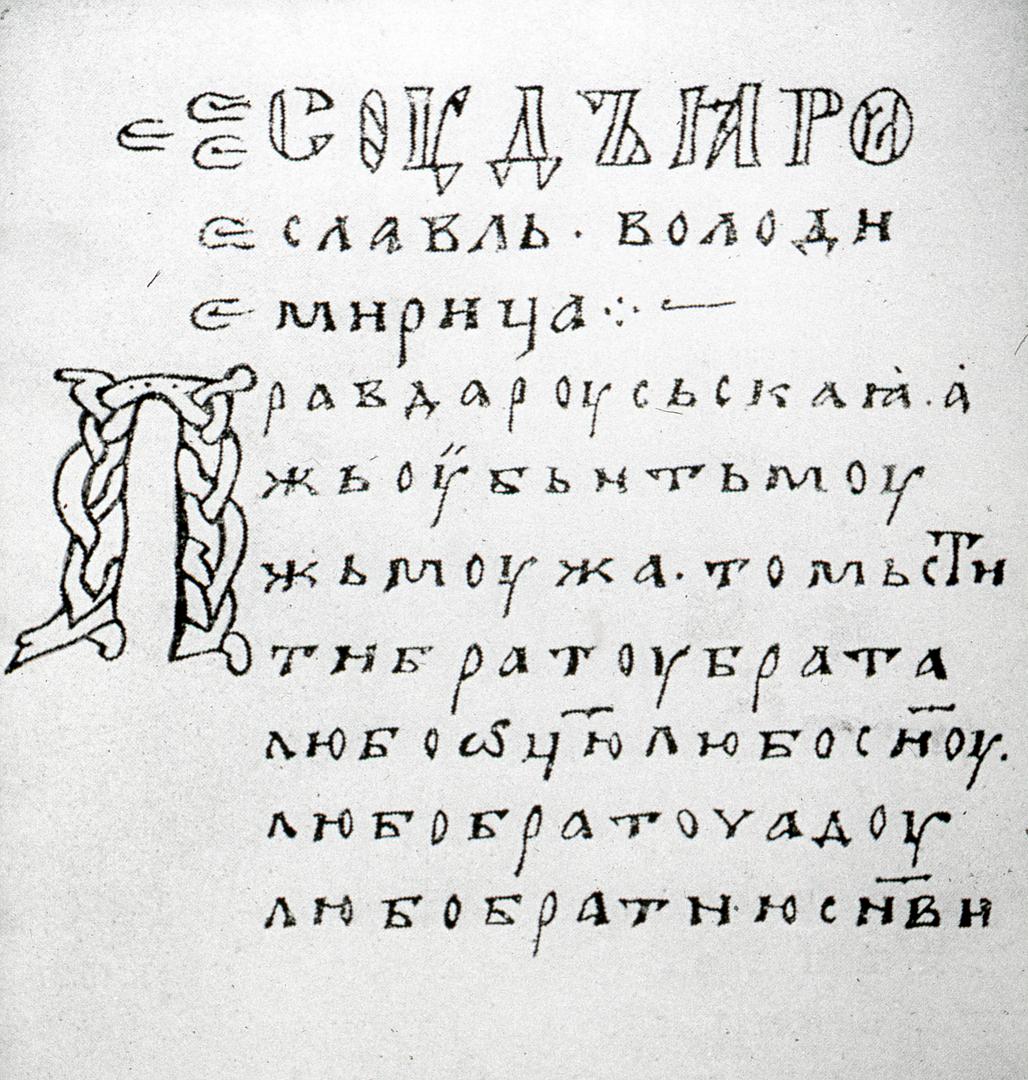 СОУДЪ ꙖРО
СЛАВЛЬ · ВОЛОДИ
МИРИЦА ⁘ —
Правда роусьскаꙗ · а
жь оубьить моу
жь моужа · то мьстⷭ҇и
ти братоу брата
любо ѿц҃ю любо сн҃оу ·
любо братоучадоу
любо братню сн҃ви